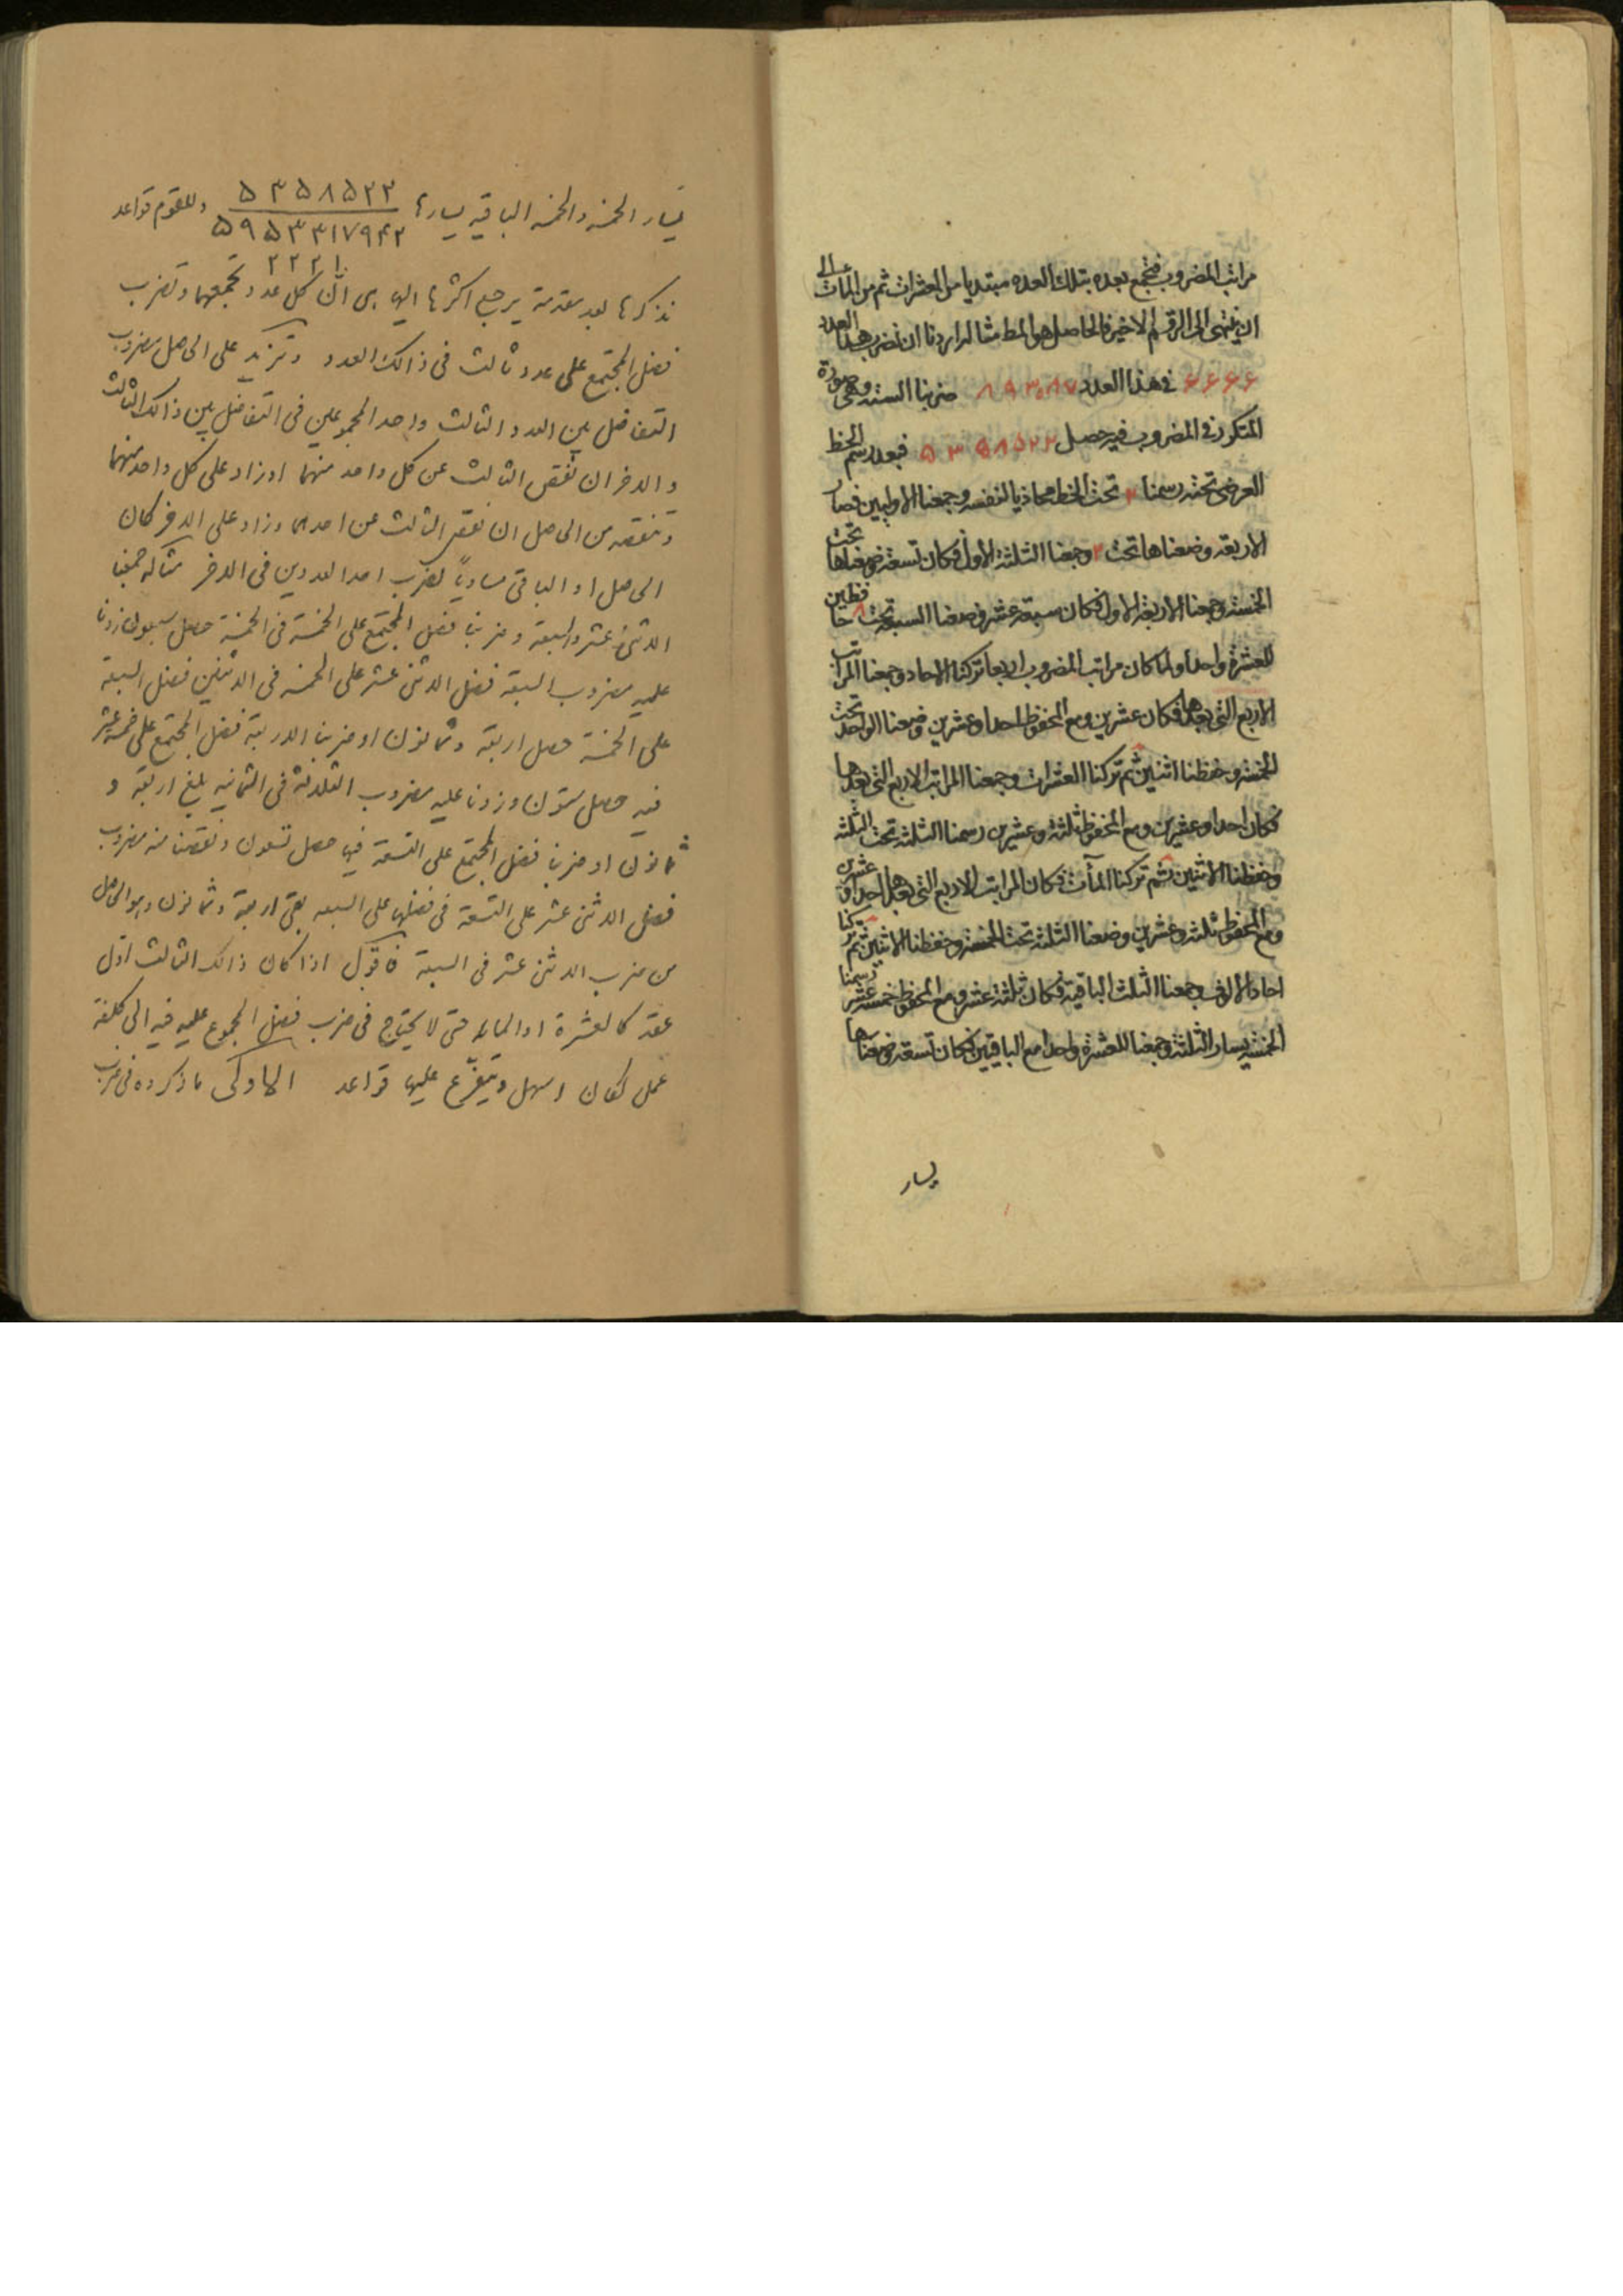 مراتب المضروب فتجمع بعده بتلك العدة مبتديا من العشرات ثم من المآت الى
ان ينتهى الى الرقم الاخير فالحاصل هو المط مثاله اردنا ان نضرب هذا العدد
۶۶۶۶ فى هذا العدد ۸۹۳۰۸۷ ضربنا الستة وهى صورة
المتكرر فى المضروب فيه حصل ۵۳۵۸۵۲۲ فبعد رسم الخط
العرضى تحته رسمنا ۲ تحت الخط محاذيا لنفسه وجمعنا الاولين فصار
الاربعة وضعناها تحت ۲ وجمعنا الثلثة الاول فكان تسعة وضعناها تحت
الخمسة وجمعنا الاربعة الاول فكان سبعة عشر وضعنا السبعة تحت ۸ حافظين
للعشرة واحدا ولما كان مراتب المضروب اربعا تركنا الاحاد وجمعنا المراتب
الاربع التى بعدها فكان عشرين ومع المحفوظ احدا وعشرين وضعنا الواحد تحت
الخمسة وحفظنا اثنين ثم تركنا العشرات وجمعنا المراتب الاربع التى بعدها
فكان احدا وعشرين ومع المحفوظ ثلثة وعشرين رسمنا الثلثة تحت الثلثة
وحفظنا الاثنين ثم تركنا المآت فكان المراتب الاربع التى بعدها احدا وعشرين
ومع المحفوظ ثلثة وعشرين وضعنا الثلثة تحت الخمسة وحفظنا الاثنين ثم تركنا
احاد الالوف وجمعنا الثلث الباقية فكان ثلثة عشر ومع المحفوظ خمسة عشر رسمنا
الخمسة يسار الثلثة وجمعنا للعشرة واحدا مع الباقيين فكان تسعة وضعناها
يسار
يسار الخمسة والخمسة الباقية يسارها ۵۳۵۸۵۲۲ وللقوم قواعد
۵۹۵۳۳۱۷۹۴۲
۲۲۲۱
نذكرها بعد مقدمة يرجع اكثرها اليها هى ان كل عدد تجمعهما وتضرب
فضل المجتمع على عدد ثالث فى ذالك العدد وتزيد على الحاصل مضروب
التفاضل بين العدد الثالث واحد المجموعين فى التفاضل بين ذالك الثالث
والاخر ان نقص الثالث عن كل واحد منهما او زاد على كل واحد منهما
وتنقصه من الحاصل ان نقص الثالث عن احدهما وزاد على الاخر كان
الحاصل او الباقى مساوياً لضرب احد العددين فى الاخر مثاله جمعنا
الاثنى عشر والسبعة وضربنا فضل المجتمع على الخمسة فى الخمسة حصل سبعون زدنا
عليه مضروب السبعة فضل الاثنى عشر على الخمسة فى الاثنين فضل السبعة
على الخمسة حصل اربعة وثمانون او ضربنا الاربعة فضل المجتمع على خمسة عشر
فيه حصل ستون وزدنا عليه مضروب الثلاثة فى الثمانية بلغ اربعة و
ثمانون او ضربنا فضل المجتمع على التسعة فيها حصل تسعون ونقصنا منه مضروب
فضل الاثنى عشر على التسعة فى فضلها على السبعه بقى اربعة وثمانون وهو الحاصل
من ضرب الاثنى عشر فى السبعة فاقول اذا كان ذالك الثالث اوّل
عقد كالعشرة او المائة حتى لا يحتاج فى ضرب فضل المجموع عليه فيه الى كلفة
عمل لكان اسهل ويتفرّع عليها قواعد الاولى ما ذكروه فى ضرب